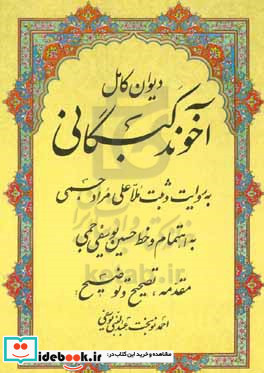 دیوان کامل
آخوند کبگانی
به روایت و ثبت ملا علی مراد جسمی
به اهتمام و خط حسین یوسفی جمی
مقدمه، تصحیح و توضیح:
احمد نوبخت
ketab.ir
مشاهده و خرید این کتاب در:
imdedbook.ir